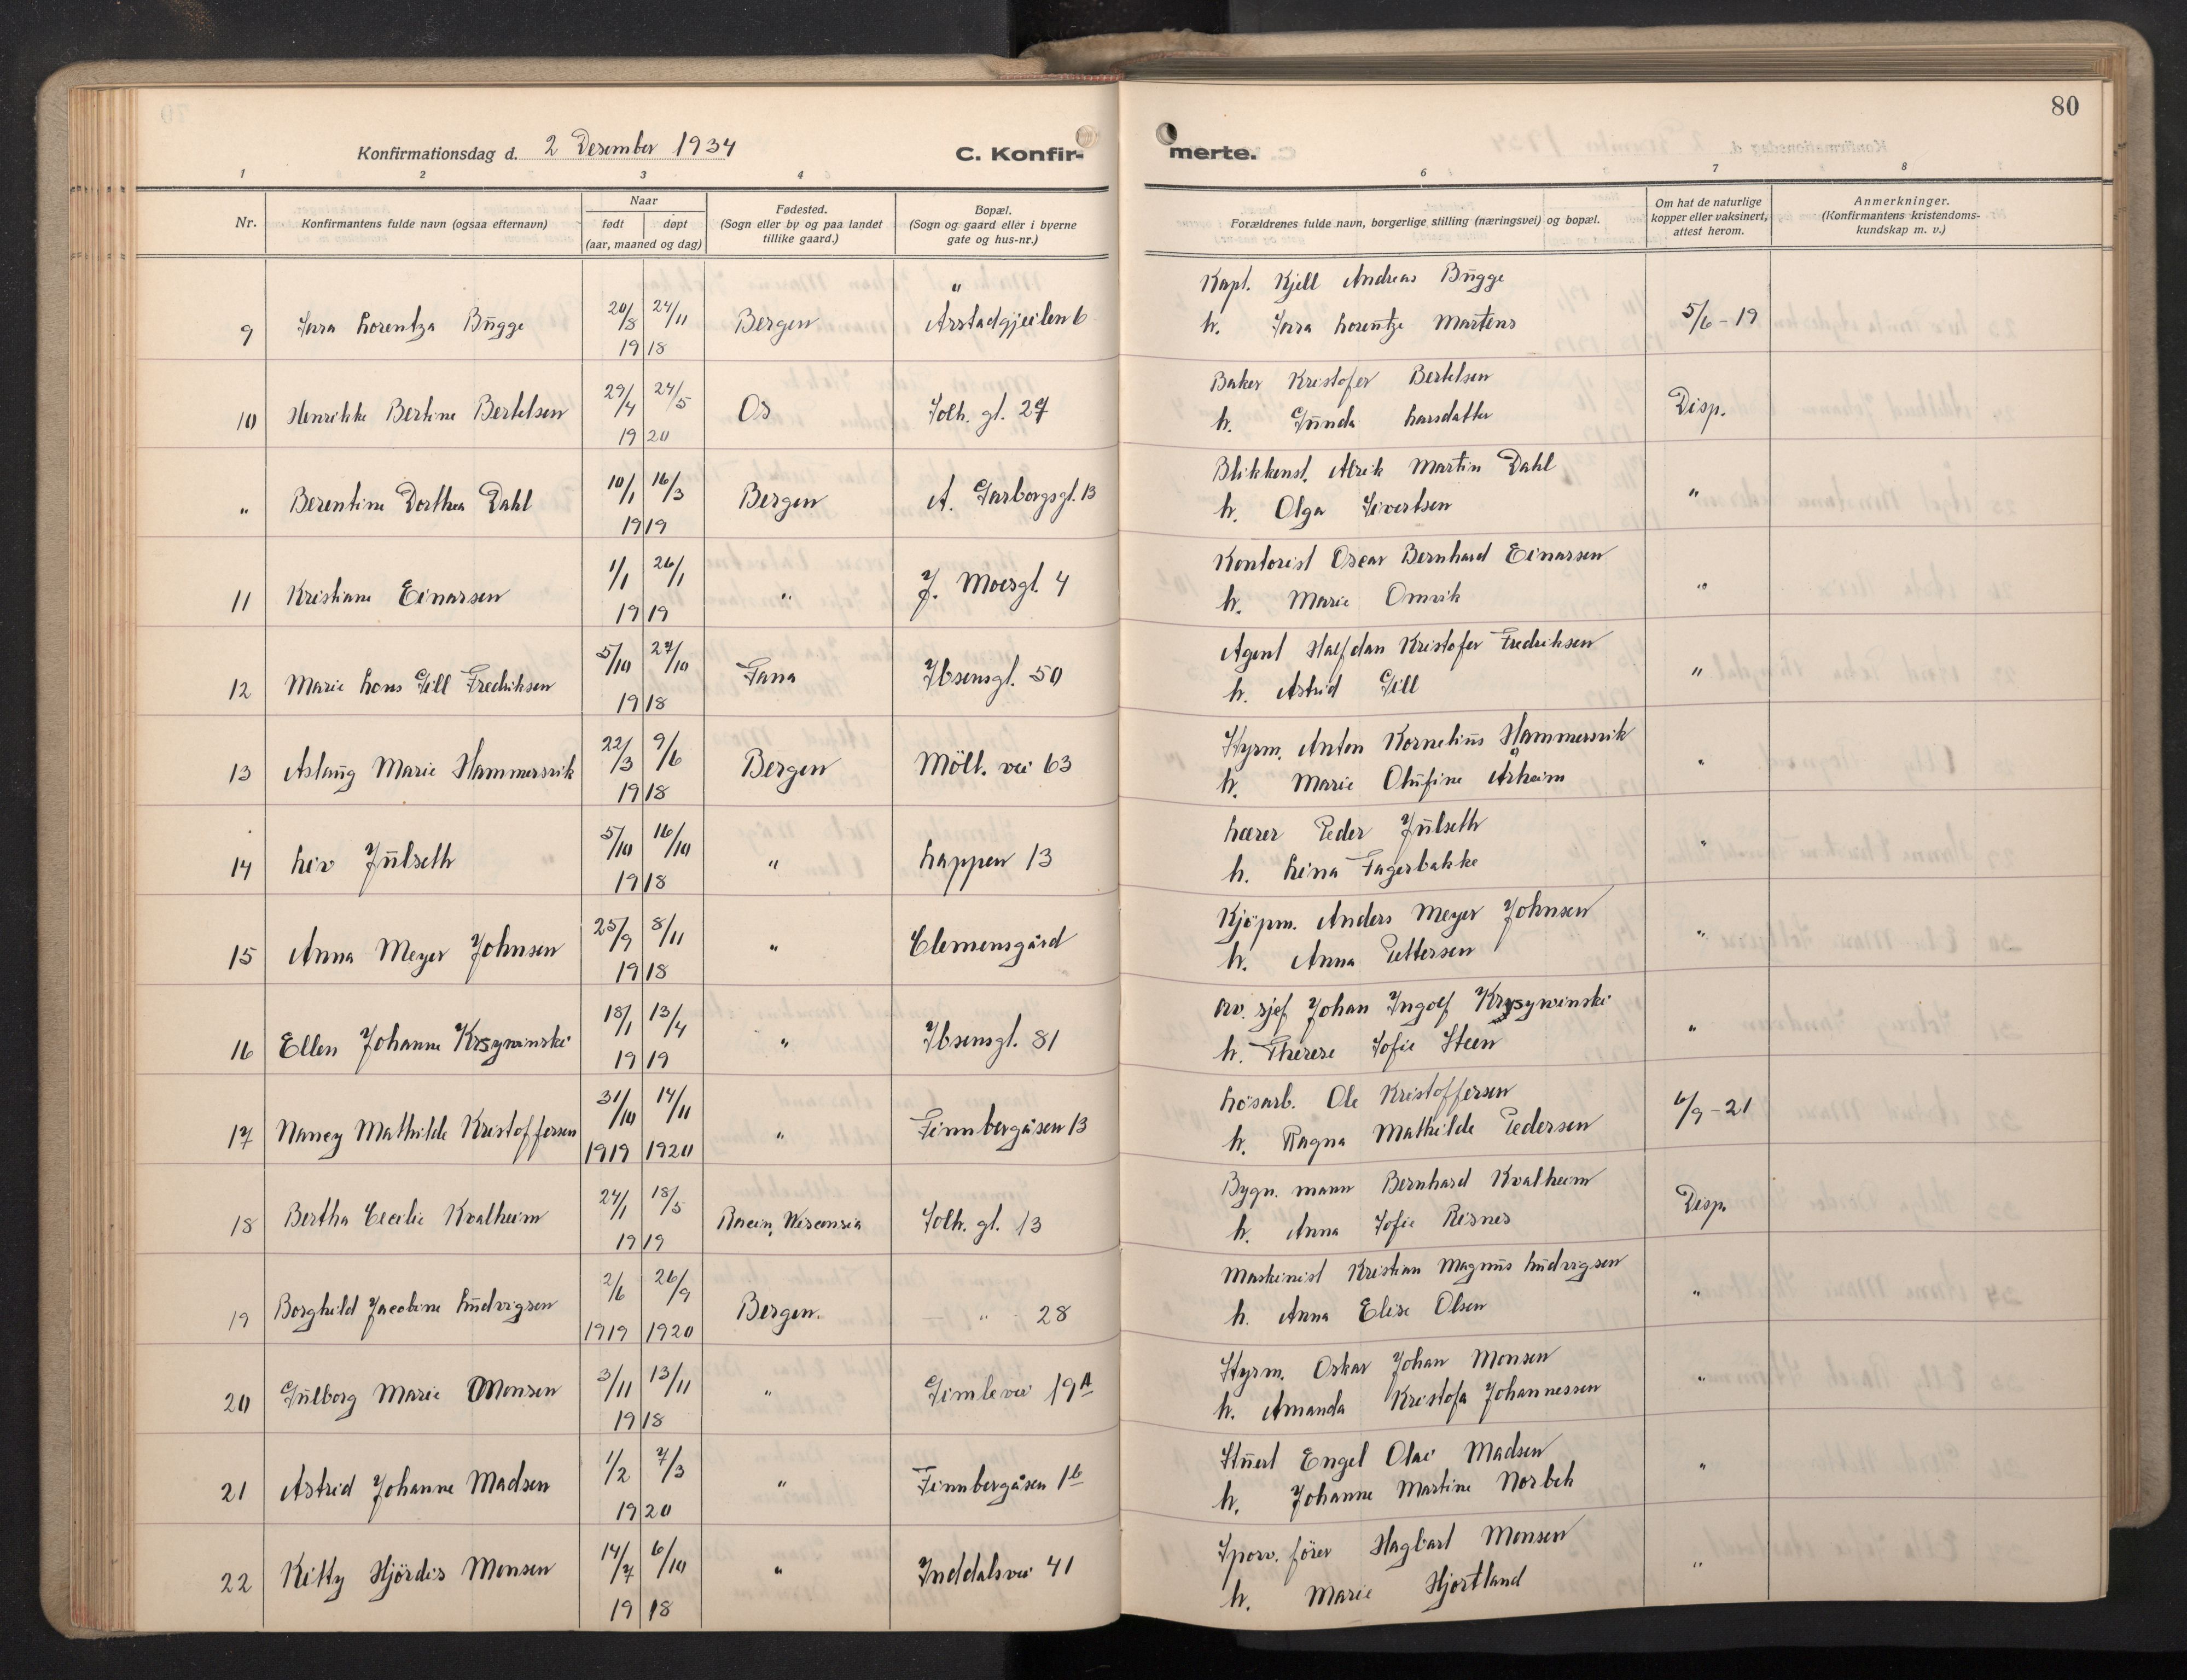 80
Konfirmationsdag d. 2 Desember 1934
C. Konfir- merte.
1 2 3 4 6 7 8
Nr.
Konfirmantens fulde navn (ogsaa efternavn)
Naar
født døpt
(aar, maaned og dag)
Fødested.
(Sogn eller by og paa landet
tillike gaard.)
Bopæl.
(Sogn og gaard eller i byerne
gate og hus-nr.)
Forældrenes fulde navn, borgerlige stilling (næringsvei) og bopæl.
Om hat de naturlige
kopper eller vaksinert,
attest herom.
Anmerkninger.
(Konfirmantens kristendoms-
kundskap m. v.)
" Kapt. Kjell Andreas Bugge
9 Sara Lorentza Bugge 20/8 24/11 Bergen Årstadgjeilen 6 h. Sara Lorentze Martens 5/6-19
1918
Baker Kristofer Bertelsen
10 Henrikke Bertine Bertelsen 29/4 24/5 Os Solh. gt. 29 h. Gunda Larsdatter Disp.
1920
Blikkensl. Alrik Martin Dahl
" Berentine Dorthea Dahl 10/1 16/3 Bergen A. Garborgsgt. 13 h. Olga Sivertsen "
1919
Kontorist Oscar Bernhard Einarsen
11 Kristiane Einarsen 1/1 26/1 " J. Moesgt. 4 h. Marie Omvik "
1919
Agent Halfdan Kristofer Fredriksen
12 Marie Lons Gill Fredriksen 5/10 27/10 Fana Ibsensgt. 50 h. Astrid Gill "
1918
Styrm. Anton Kornelius Hammersvik
13 Aslaug Marie Hammersvik 22/3 9/6 Bergen Möll. vei 63 h. Marie Olufine Årheim "
1918
Lærer Peder Julseth
14 Liv Julseth 5/10 16/10 " Lappen 13 h. Lina Fagerbakke "
1918
Kjöpm. Anders Meyer Johnsen
15 Anna Meyer Johnsen 25/9 8/11 " Clemensgård h. Anna Pettersen "
1918
Av. sjef Johan Ingolf Krysywinski
16 Ellen Johanne Krsywinski 18/1 13/4 " Ibsensgt. 81 h. Therese Sofie Steen "
1919
Løsarb. Ole Kristoffersen
17 Nancy Mathilde Kristoffersen 31/10 14/11 " Finnbergåsen 13 h. Ragna Mathilde Pedersen 6/9-21
1919 1920
Bygn. mann Bernhard Kvalheim
18 Bertha Cecilie Kvalheim 24/1 18/5 Racin, Wisconsin Solh. gt. 13 h. Anna Sofie Risnes Disp.
1919
Maskinist Kristian Magnus Ludvigsen
19 Borghild Jacobine Ludvigsen 2/6 26/9 Bergen. " 28 h. Anna Elise Olsen "
1919 1920
Styrm. Oskar Johan Monsen
20 Gulborg Marie Monsen 3/11 13/11 " Gimlevei 19A h. Amanda Kristofa Johannessen "
1918
Stuert Engel Olai Madsen
21 Astrid Johanne Madsen 1/2 7/3 " Finnbergåsen 1b h. Johanne Martine Norbek "
1920
Sporv. förer Hagbart Monsen
22 Kitty Hjördis Monsen 14/7 6/10 " Inddalsvei 41 h. Marie Hjortland "
1918